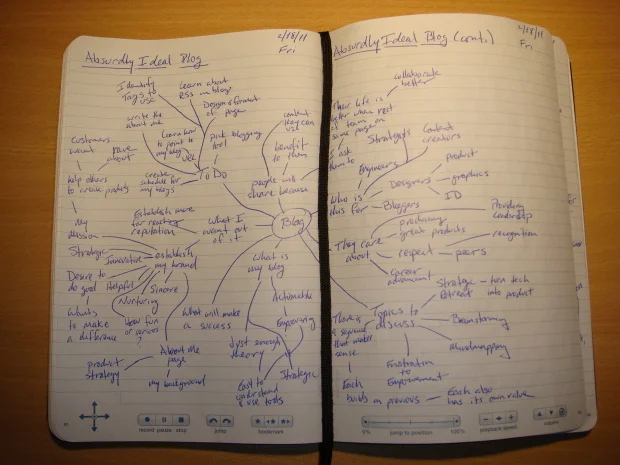 Absurdly Ideal Blog
2/18/11
Fri
Identify
Tags to
use
Learn about
RSS on blog?
Design & format
of page
write the
about me
Learn how
to point to
my blog
URL
pick blogging
tool
create
schedule for
my blogs
To Do
content
they can
use
benefit
to them
people will
share because
Blog
customers
want
care
about
help others
to create products
my
mission
Establish more
far reaching
reputation
What I
want out
of it
Strategic
Innovative
establish
my brand
Desire to
do good
Helpful
Nurturing
Sincere
Wants
to make
a difference
How fun
or serious
?
What will make
a success
product
strategy
About Me
page
my background
What is
my blog
Actionable
Empowering
Just enough
theory
Strategic
Easy to
understand
& use tools
record pause stop
jump
bookmark
Absurdly Ideal Blog (cont.)
2/18/11
Fri
collaborate
better
Their life is
better when rest
of team on
same page on
I ask
them to
Strategists
Content
creators
Engineers
product
Designers
graphics
ID
Who is
this for
Bloggers
They care
about
producing
great products
Providing
Leadership
recognition
respect
peers
Career
advancement
Topics to
discuss
Strategic
Retreat
turn tech
into product
Brainstorming
Mindmapping
There is
a sequence
that makes
sense
Frustration
to
Empowerment
Each
builds on previous
Each also
has its own value
0%
jump to position
100%
playback speed
volume